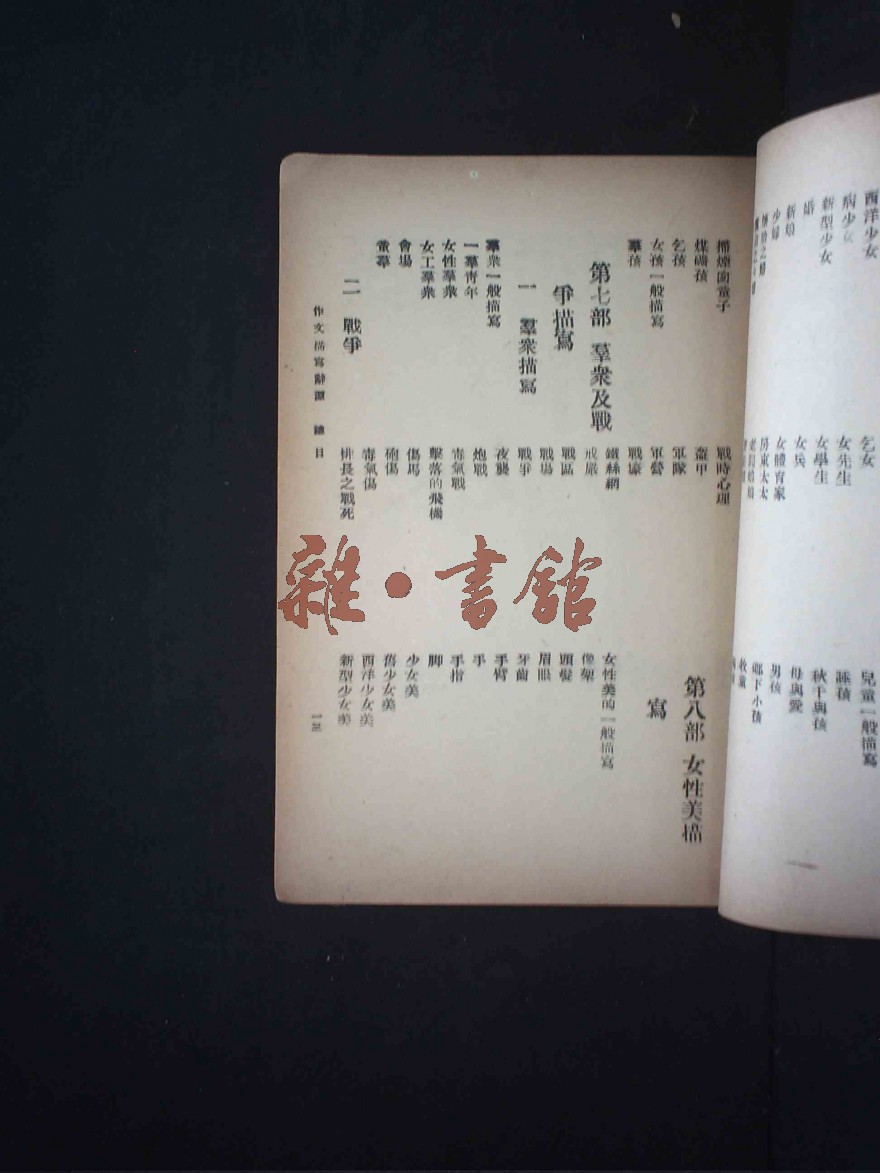 西洋少女
病少女
新型少女
婚
新娘
少婦
乞女
女先生
女學生
女兵
女體育家
房東太太
兒童一般描寫
睡孩
秋千與孩
母與愛
男孩
鄉下小孩
牧童
掃煙囪童子
煤礦孩
乞孩
女孩一般描寫
羣孩
第七部 羣衆及戰
爭描寫
一 羣衆描寫
羣衆一般描寫
一羣青年
女性羣衆
女工羣衆
會場
二 戰爭
戰時心理
盔甲
軍隊
軍營
戰壕
鐵絲網
戒嚴
戰區
戰場
戰爭
夜襲
炮戰
毒氣戰
擊落的飛機
傷馬
砲傷
毒氣傷
排長之戰死
第八部 女性美描
寫
女性美的一般描寫
像架
頭髮
眉眼
牙齒
手臂
手
手指
脚
少女美
舊少女美
西洋少女美
新型少女美
作文描寫辭源 總目
一三
雜·書館